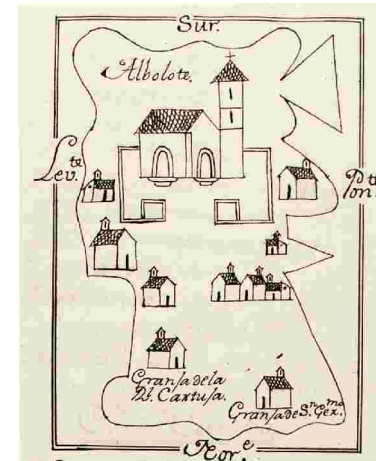 Sur.
Albolote.
Lev.te
Pon.te
Granja de la
Rl. Cartusa.
Granja de Sn. Germo.
Nor.e